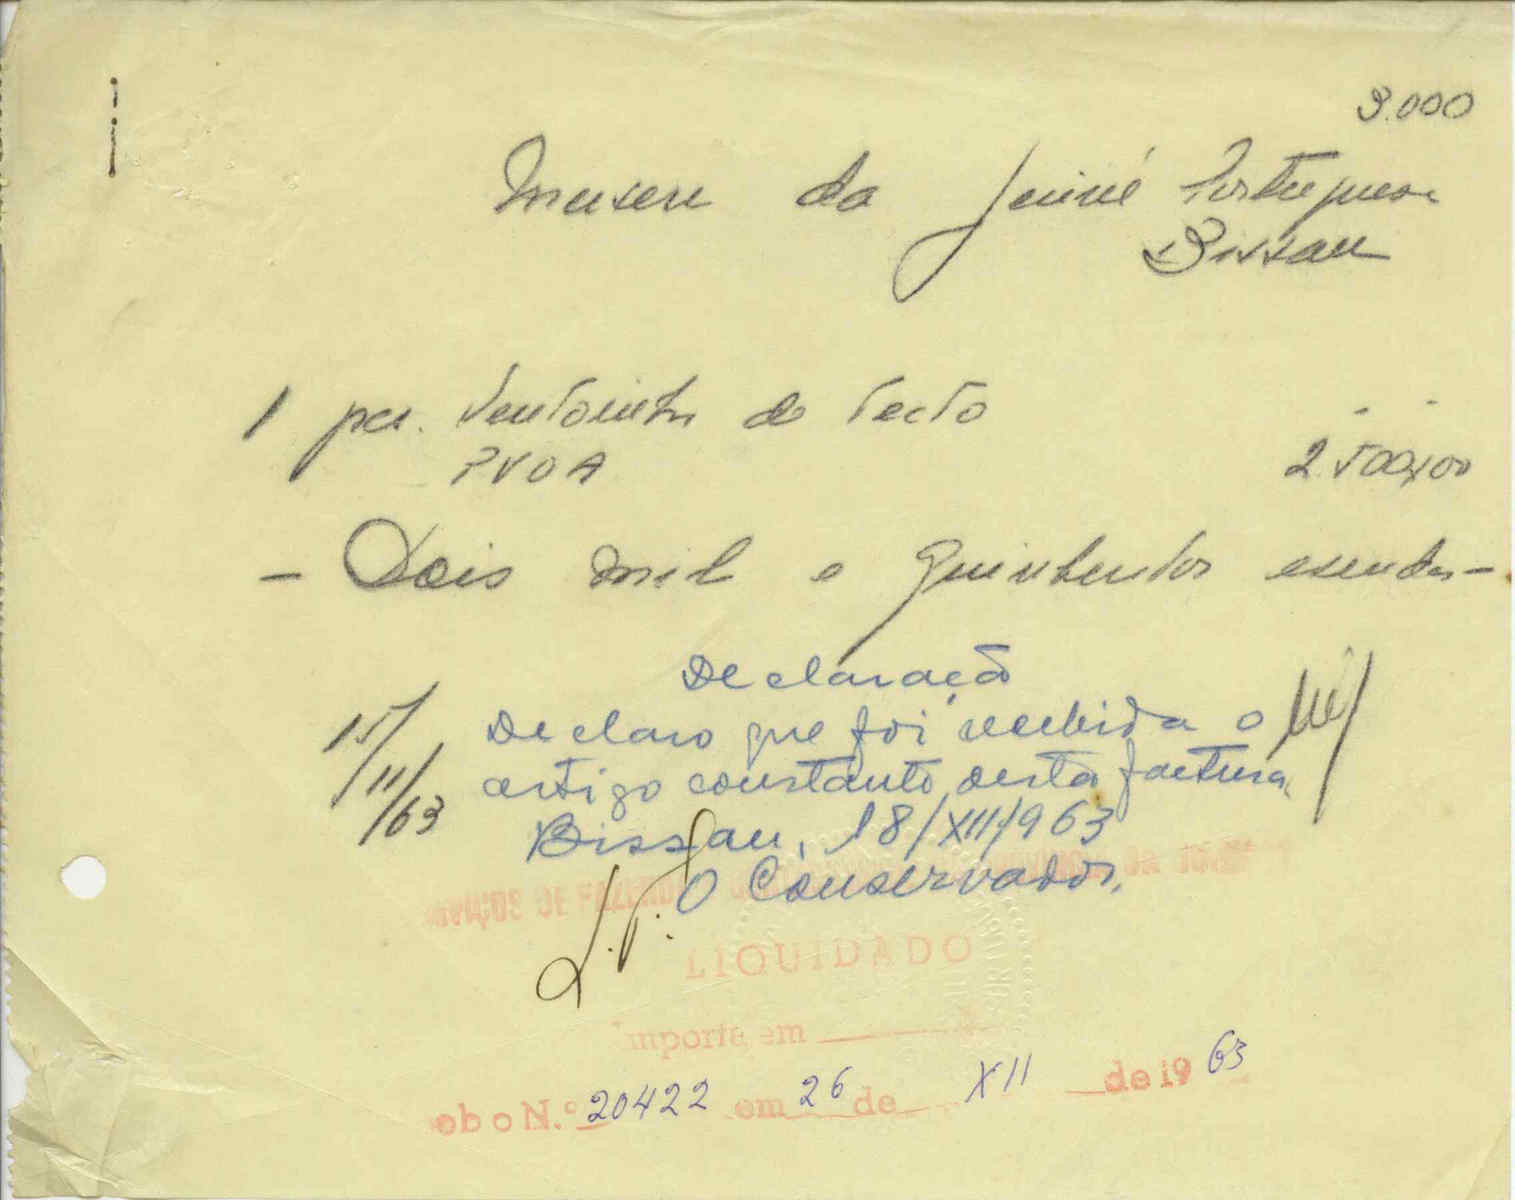 3.000
Museu da Guiné Portuguesa
Bissau
1 pca. Ventoinha de tecto
PVOA 2.500$00
- Dois mil e quinhentos escudos -
Declaração
Declaro que foi recebida o
artigo constante desta factura
Bissau, 18/XII/963
O Conservador,
15/11/63
VIÇOS DE FAZENDA
LIQUIDADO
Importa em
ebo N.º 20422 em 26 de XII de 1963